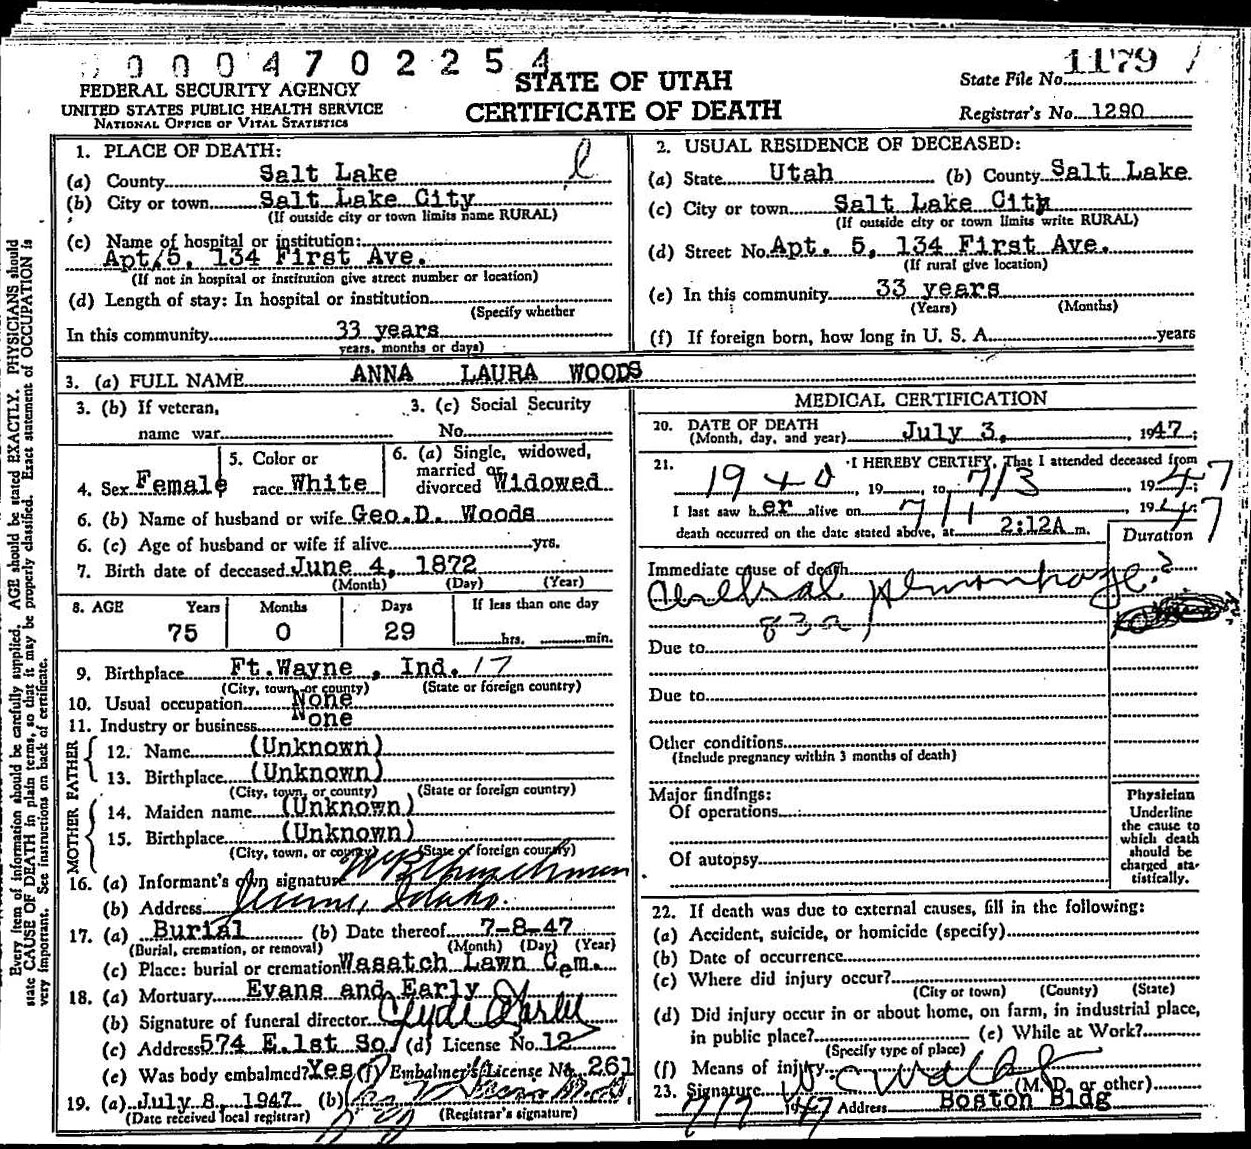 0004702254
FEDERAL SECURITY AGENCY
UNITED STATES PUBLIC HEALTH SERVICE
NATIONAL OFFICE OF VITAL STATISTICS
STATE OF UTAH
CERTIFICATE OF DEATH
State File No. 1179
Registrar's No. 1290
1. PLACE OF DEATH:
(a) County Salt Lake
(b) City or town Salt Lake City
(If outside city or town limits name RURAL)
(c) Name of hospital or institution:
Apt/5, 134 First Ave.
(If not in hospital or institution give street number or location)
(d) Length of stay: In hospital or institution
(Specify whether
In this community 33 years
years, months or days)
2. USUAL RESIDENCE OF DECEASED:
(a) State Utah (b) County Salt Lake
(c) City or town Salt Lake City
(If outside city or town limits write RURAL)
(d) Street No. Apt. 5, 134 First Ave.
(If rural give location)
(e) In this community 33 years
(Years) (Months)
(f) If foreign born, how long in U. S. A. years
3. (a) FULL NAME ANNA LAURA WOODS
3. (b) If veteran, name war
3. (c) Social Security No.
4. Sex Female
5. Color or race White
6. (a) Single, widowed, married or divorced Widowed
6. (b) Name of husband or wife Geo.D. Woods
6. (c) Age of husband or wife if alive yrs.
7. Birth date of deceased June 4, 1872
(Month) (Day) (Year)
8. AGE Years Months Days If less than one day
75 0 29 hrs. min.
9. Birthplace Ft.Wayne , Ind. 17
(City, town, or county) (State or foreign country)
10. Usual occupation None
11. Industry or business None
FATHER
12. Name (Unknown)
13. Birthplace (Unknown)
(City, town, or county) (State or foreign country)
MOTHER
14. Maiden name (Unknown)
15. Birthplace (Unknown)
(City, town, or county) (State or foreign country)
16. (a) Informant's own signature
(b) Address Jerome, Idaho.
17. (a) Burial (b) Date thereof 7-8-47
(Burial, cremation, or removal) (Month) (Day) (Year)
(c) Place: burial or cremation Wasatch Lawn Cem.
18. (a) Mortuary Evans and Early
(b) Signature of funeral director Clyde Early
(c) Address 574 E.1st So. (d) License No. 12
(e) Was body embalmed? Yes (f) Embalmer's License No. 261
19. (a) July 8, 1947 (b)
(Date received local registrar) (Registrar's signature)
MEDICAL CERTIFICATION
20. DATE OF DEATH
(Month, day, and year) July 3, 1947;
21. I HEREBY CERTIFY, That I attended deceased from
1940, 19 to 7/3 1947;
I last saw her alive on 7/1 1947
death occurred on the date stated above, at 2:12A m.
Duration
Immediate cause of death
Cerebral Hemorrhage?
83a
Due to
Due to
Other conditions
(Include pregnancy within 3 months of death)
Major findings:
Of operations
Of autopsy
Physician
Underline
the cause to
which death
should be
charged sta-
tistically.
22. If death was due to external causes, fill in the following:
(a) Accident, suicide, or homicide (specify)
(b) Date of occurrence
(c) Where did injury occur?
(City or town) (County) (State)
(d) Did injury occur in or about home, on farm, in industrial place,
in public place? (e) While at Work?
(Specify type of place)
(f) Means of injury
23. Signature (M. D. or other)
7/7 1947 Address Boston Bldg
Every item of information should be carefully supplied. AGE should be stated EXACTLY. PHYSICIANS should
state CAUSE OF DEATH in plain terms, so that it may be properly classified. Exact statement of OCCUPATION is
very important. See instructions on back of certificate.